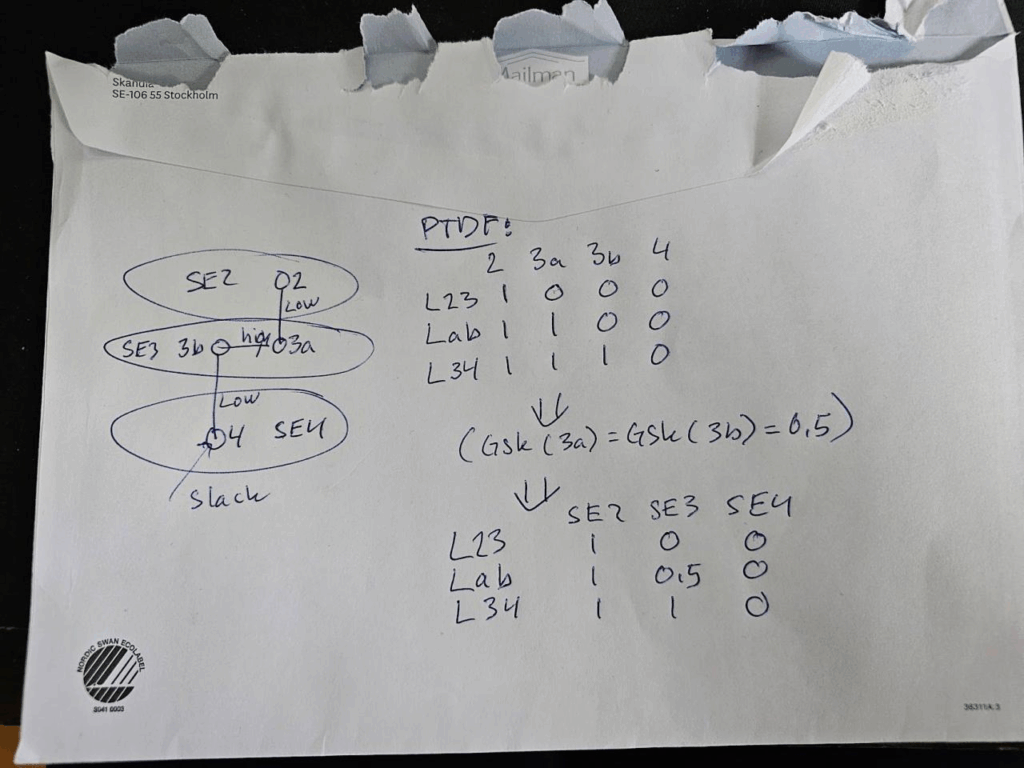 Mailman
SE-106 55 Stockholm
PTDF:
2 3a 3b 4
L23 1 0 0 0
Lab 1 1 0 0
L34 1 1 1 0
(GSK(3a)=GSK(3b)=0,5)
SE2 SE3 SE4
L23 1 0 0
Lab 1 0,5 0
L34 1 1 0
SE2 2
Low
SE3 3b high 3a
Low
4 SE4
Slack
NORDIC SWAN ECOLABEL
3041 0003